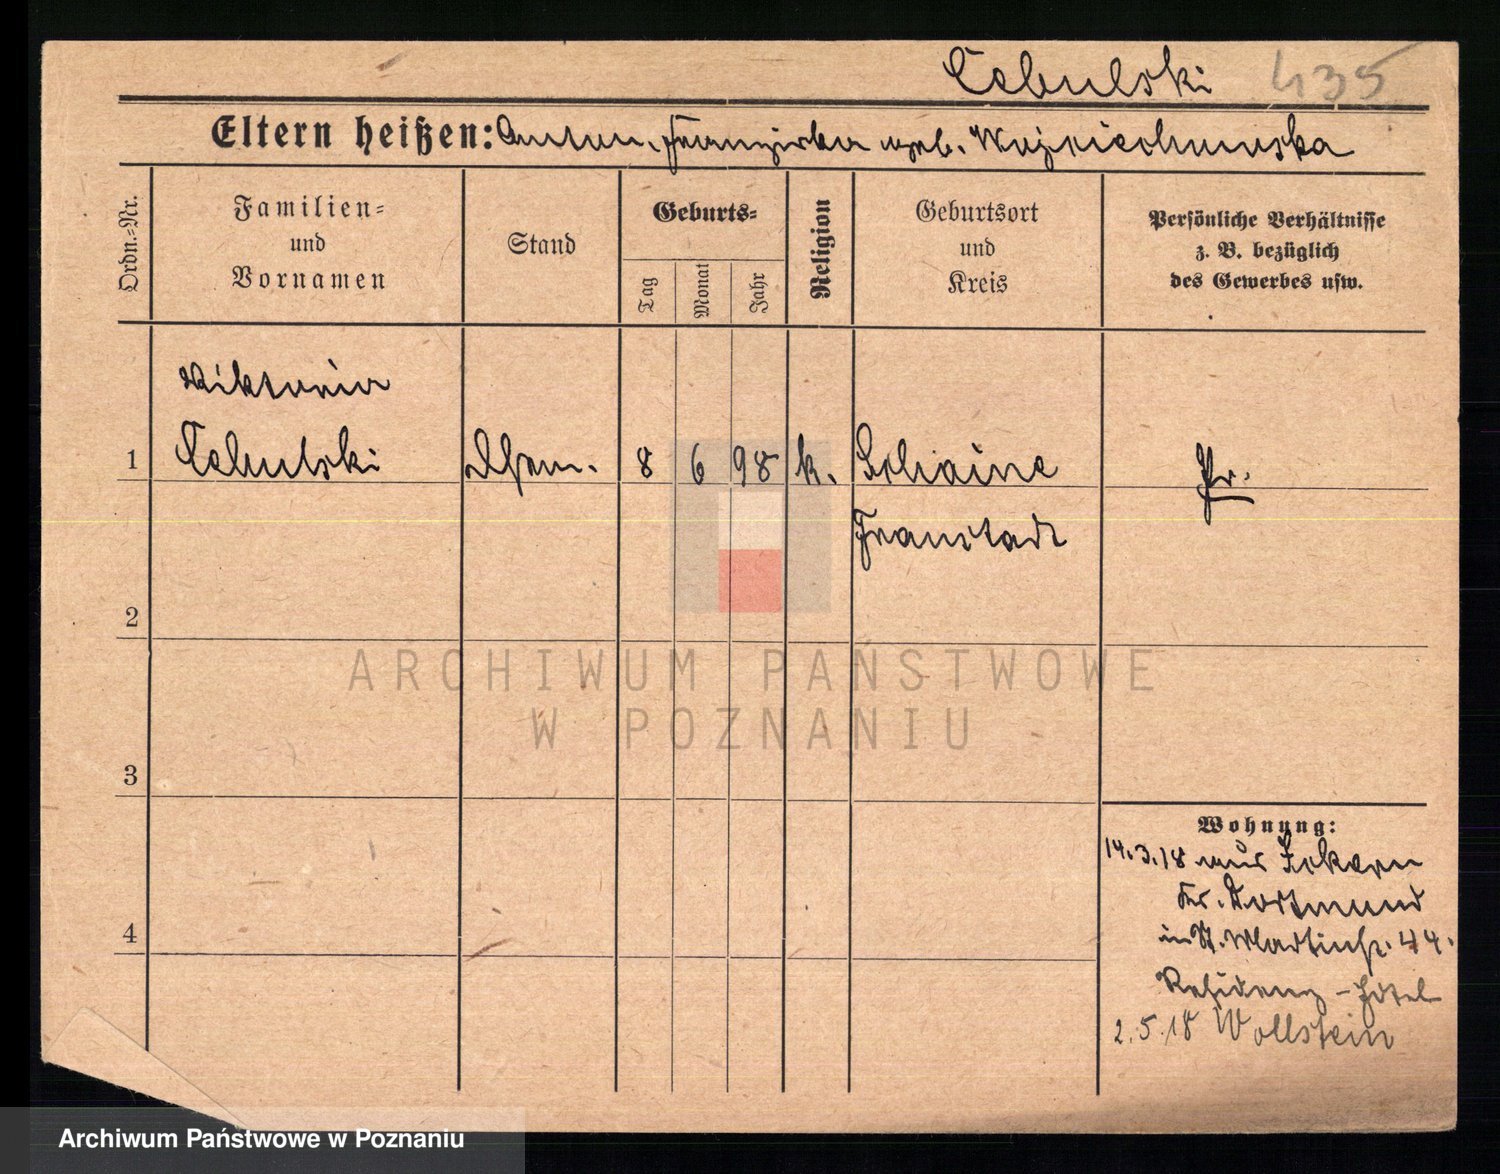 Cebulski 435
Eltern heißen: Anton. Franziska geb. Wojciechowska
Ordn.-Nr.
Familien-
und
Vornamen
Stand
Geburts-
Tag
Monat
Jahr
Religion
Geburtsort
und
Kreis
Persönliche Verhältnisse
z. B. bezüglich
des Gewerbes usw.
Viktoria
1 Cebulski 8 6 98 k. Pr.
Fraustadt
2
3
4
Wohnung:
14.3.18 aus Ickern
Kr. Dortmund
in St. Martinstr. 44.
Residenz-Hotel
2.5.18 Wollstein
ARCHIWUM PAŃSTWOWE
W POZNANIU
Archiwum Państwowe w Poznaniu